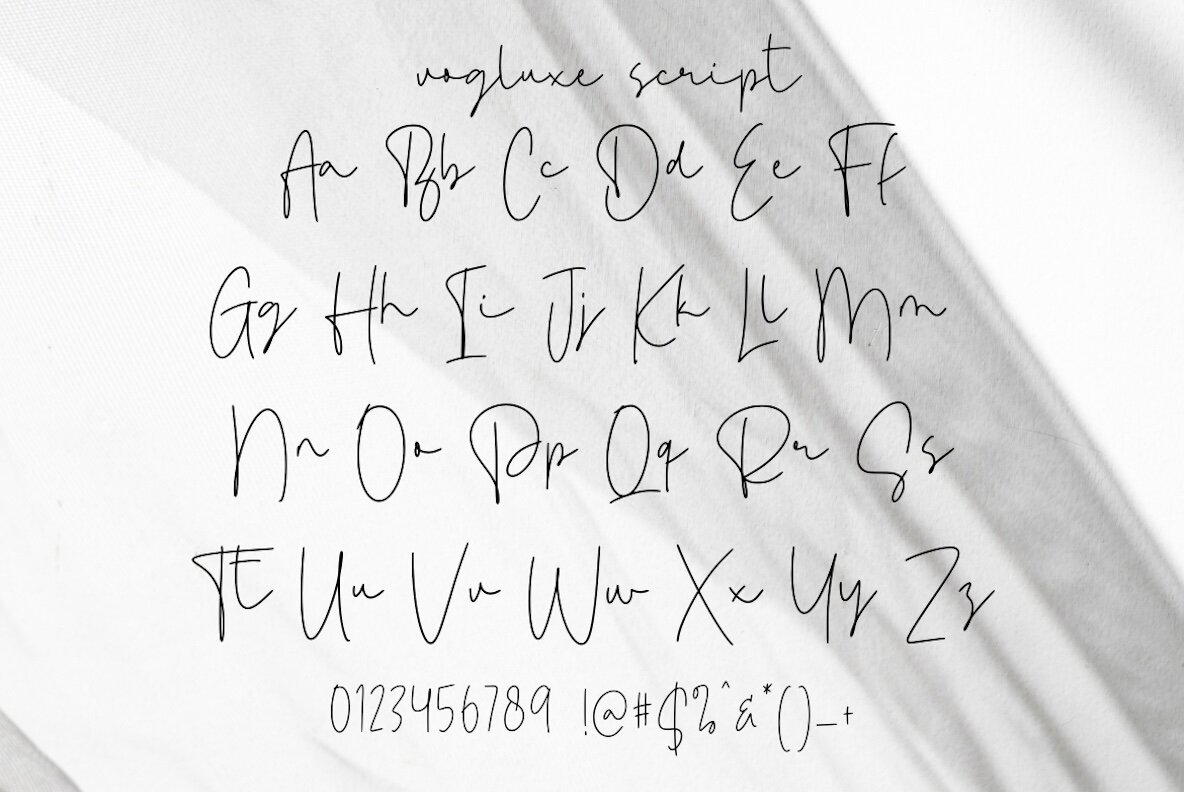 vogluxe script
Aa Bb Cc Dd Ee Ff
Gg Hh Ii Jj Kk Ll Mm
Nn Oo Pp Qq Rr Ss
Tt Uu Vv Ww Xx Yy Zz
0123456789 !@#$%^&*()_+